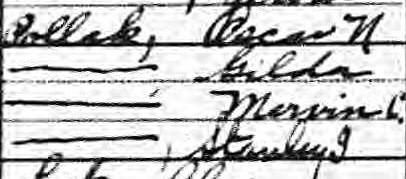 Pollak, Oscar N
—— Gilda
—— Mervin C.
——, Stanley J